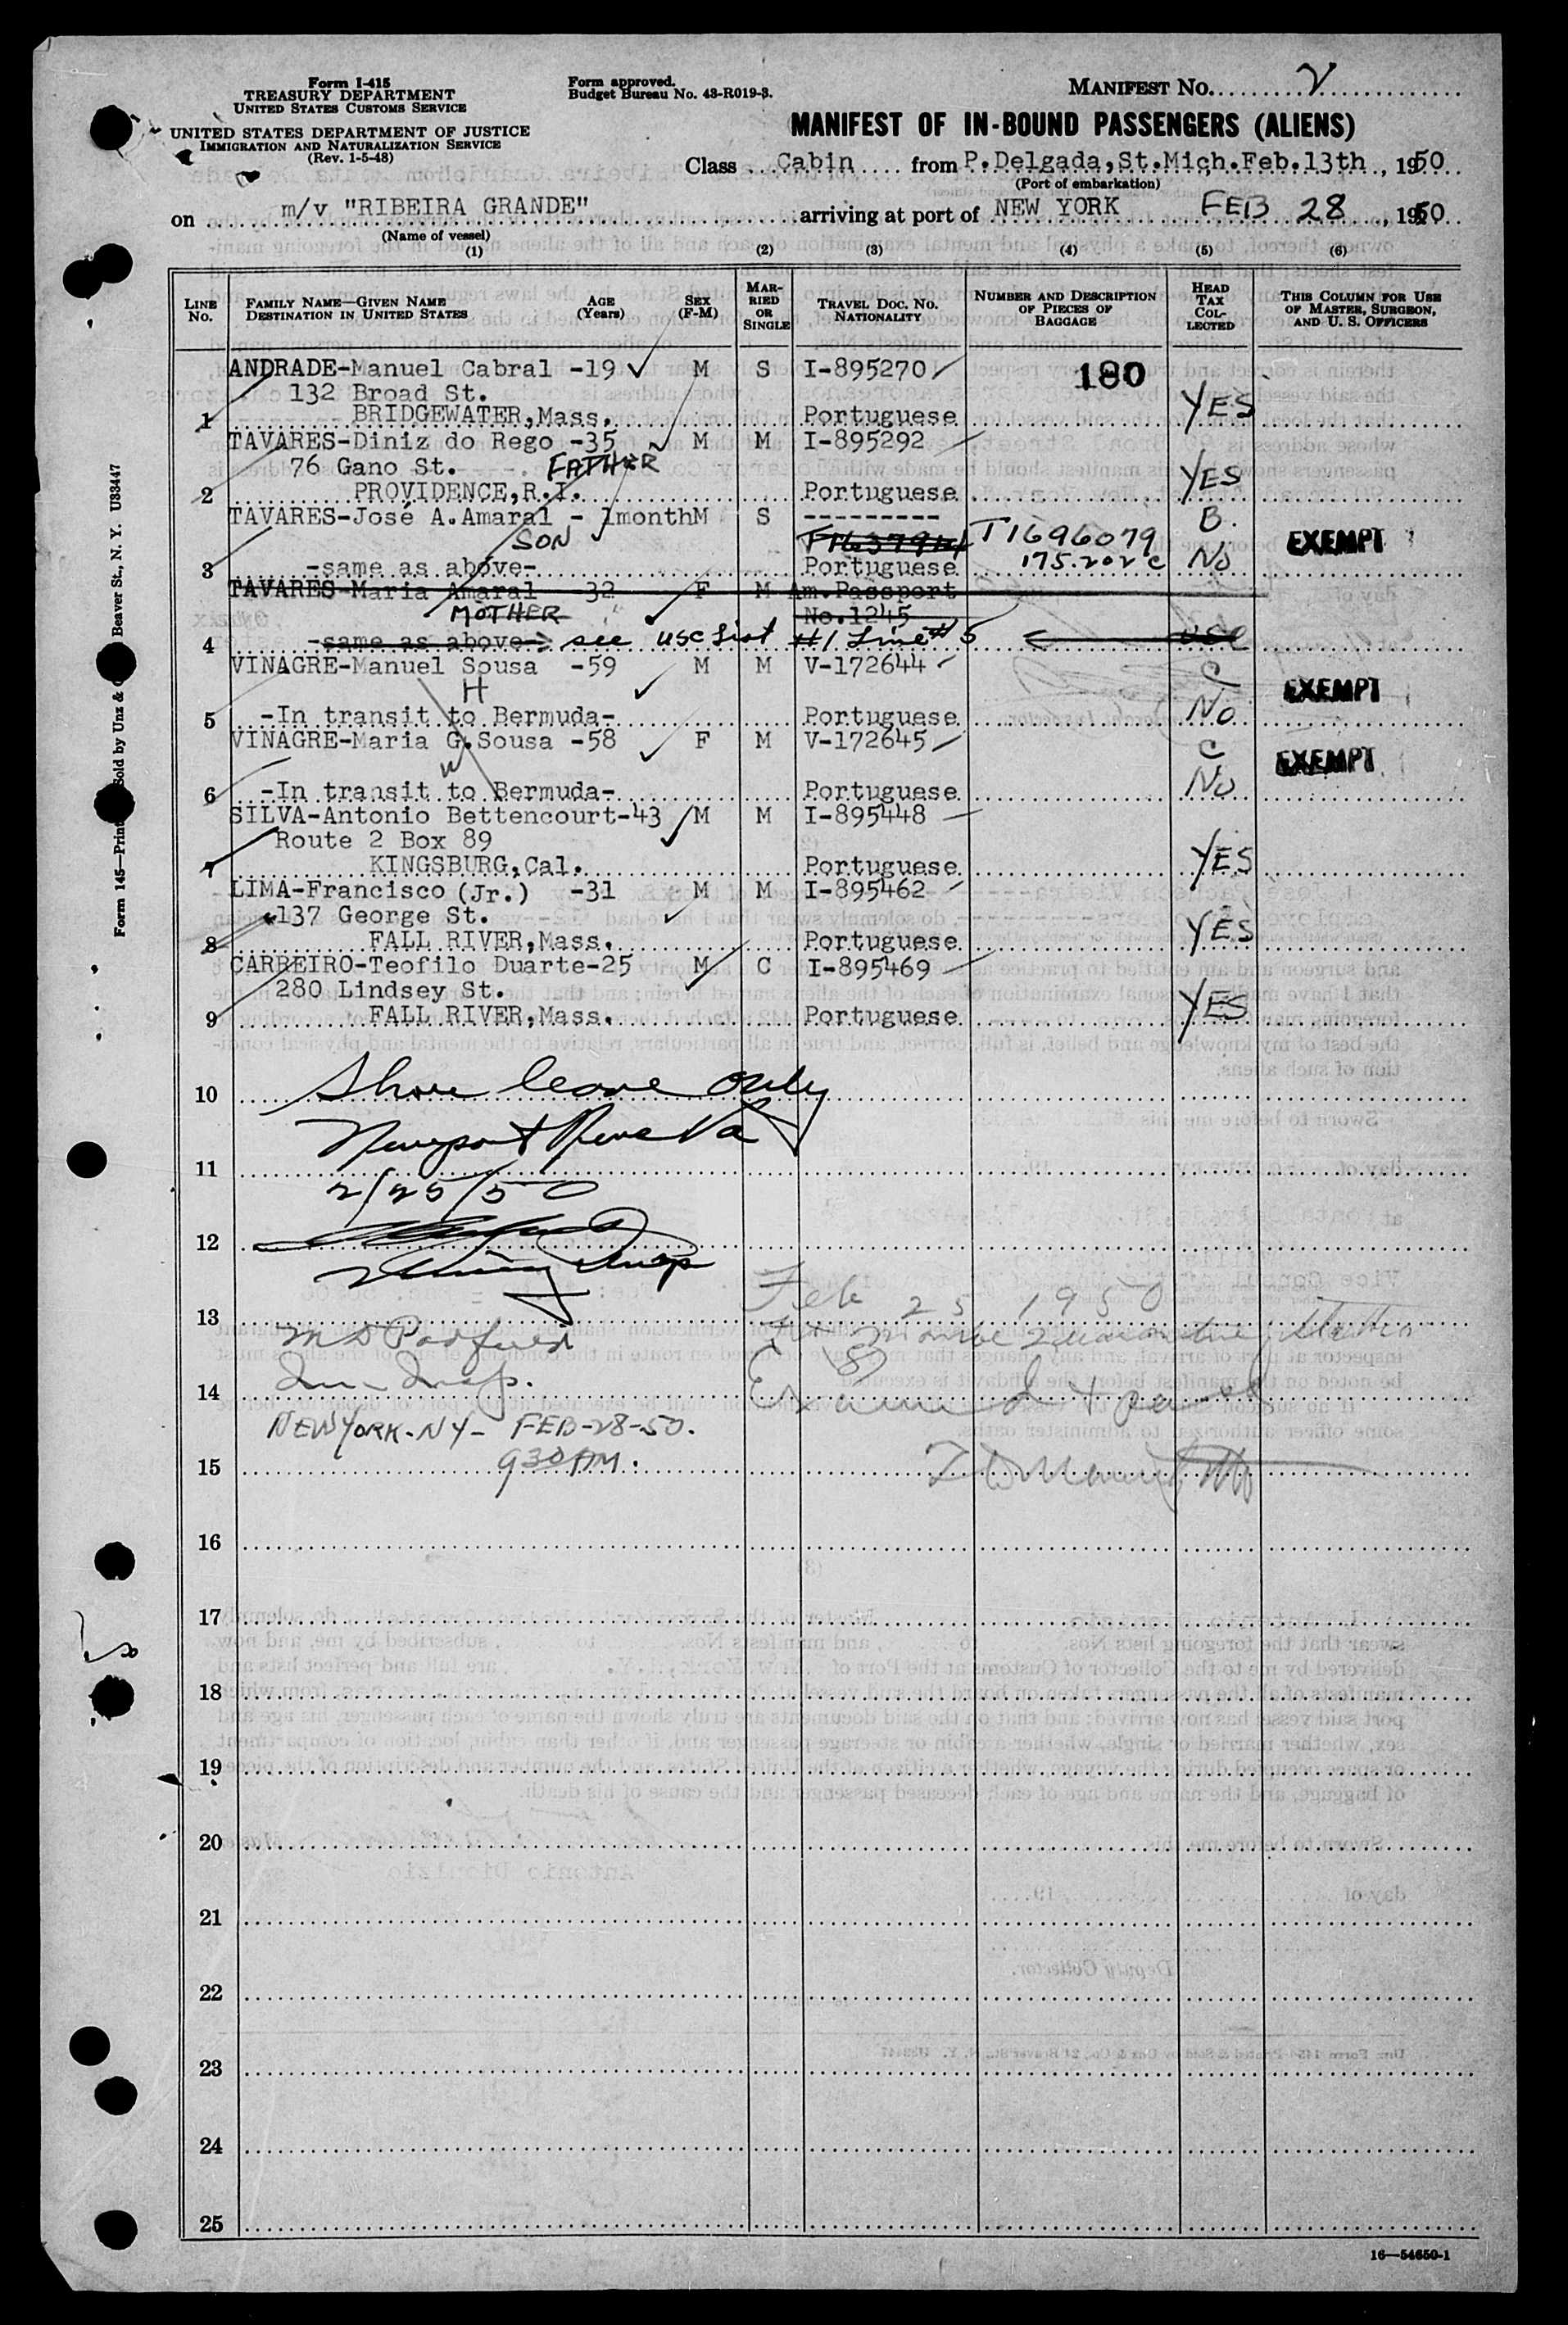 Form I-415
TREASURY DEPARTMENT
UNITED STATES CUSTOMS SERVICE
UNITED STATES DEPARTMENT OF JUSTICE
IMMIGRATION AND NATURALIZATION SERVICE
(Rev. 1-5-48)
Form approved.
Budget Bureau No. 43-R019-3.
MANIFEST No. 2
MANIFEST OF IN-BOUND PASSENGERS (ALIENS)
Class Cabin from P.Delgada,St.Mich.Feb.13th, 1950
(Port of embarkation)
on m/v "RIBEIRA GRANDE" arriving at port of NEW YORK FEB 28, 1950
(Name of vessel)
(1) (2) (3) (4) (5) (6)
LINE No. FAMILY NAME—GIVEN NAME DESTINATION IN UNITED STATES AGE (Years) SEX (F-M) MARRIED OR SINGLE TRAVEL DOC. NO. NATIONALITY NUMBER AND DESCRIPTION OF PIECES OF BAGGAGE HEAD TAX COLLECTED THIS COLUMN FOR USE OF MASTER, SURGEON, AND U. S. OFFICERS
ANDRADE-Manuel Cabral -19 M S I-895270 180
132 Broad St.
1 BRIDGEWATER,Mass. Portuguese YES
TAVARES-Diniz do Rego -35 M M I-895292
76 Gano St. FATHER
2 PROVIDENCE,R.I. Portuguese YES
TAVARES-José A.Amaral - 1month M S --------- B.
SON T1696079 EXEMPT
3 -same as above- Portuguese 175.202 c No
TAVARES-Maria Amaral -32 F M Am.Passport
MOTHER No.1245
4 -same as above- see USC List #1 Line # 5 USC
VINAGRE-Manuel Sousa -59 M M V-172644 C
H EXEMPT
5 -In transit to Bermuda- Portuguese No
VINAGRE-Maria G.Sousa -58 F M V-172645 C
W EXEMPT
6 -In transit to Bermuda- Portuguese No
SILVA-Antonio Bettencourt-43 M M I-895448
Route 2 Box 89
7 KINGSBURG,Cal. Portuguese YES
LIMA-Francisco (Jr.) -31 M M I-895462
137 George St.
8 FALL RIVER,Mass. Portuguese YES
CARREIRO-Teofilo Duarte-25 M C I-895469
280 Lindsey St.
9 FALL RIVER,Mass. Portuguese YES
10 Shore leave only
Newport News Va
11
2/25/50
12
Feb 25 1950
13
14 Examined & passed
NEW YORK-NY- FEB-28-50.
15 930 AM.
16
17
18
19
20
21
22
23
24
25
16—54650-1
Beaver St., N. Y. U33447
Form 145—Print Sold by Unz &